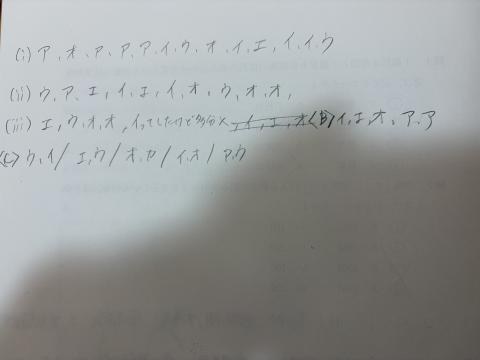 (i) ア、オ、ア、ア、ア、イ、ウ、オ、イ、エ、イ、イ、ウ
(ii) ウ、ア、エ、イ、エ、イ、オ、ウ、オ、オ、
(iii) エ、ウ、オ、オ、イってしたけど多分× 、イ、エ、オ〈B〉イ、エ、オ、ア、ア
〈C〉ウ、イ/エ、ウ/オ、カ/イ、オ/ア、ウ